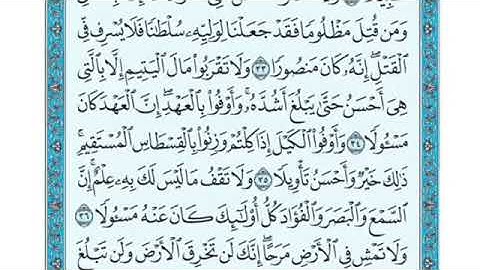 وَمَن قُتِلَ مَظْلُومًا فَقَدْ جَعَلْنَا لِوَلِيِّهِۦ سُلْطَٰنًا فَلَا يُسْرِف فِّى
ٱلْقَتْلِ ۖ إِنَّهُۥ كَانَ مَنصُورًا ٣٣ وَلَا تَقْرَبُوا۟ مَالَ ٱلْيَتِيمِ إِلَّا بِٱلَّتِى
هِىَ أَحْسَنُ حَتَّىٰ يَبْلُغَ أَشُدَّهُۥ ۚ وَأَوْفُوا۟ بِٱلْعَهْدِ ۖ إِنَّ ٱلْعَهْدَ كَانَ
مَسْـُٔولًا ٣٤ وَأَوْفُوا۟ ٱلْكَيْلَ إِذَا كِلْتُمْ وَزِنُوا۟ بِٱلْقِسْطَاسِ ٱلْمُسْتَقِيمِ ۚ
ذَٰلِكَ خَيْرٌ وَأَحْسَنُ تَأْوِيلًا ٣٥ وَلَا تَقْفُ مَا لَيْسَ لَكَ بِهِۦ عِلْمٌ ۚ إِنَّ
ٱلسَّمْعَ وَٱلْبَصَرَ وَٱلْفُؤَادَ كُلُّ أُو۟لَٰٓئِكَ كَانَ عَنْهُ مَسْـُٔولًا ٣٦
وَلَا تَمْشِ فِى ٱلْأَرْضِ مَرَحًا ۖ إِنَّكَ لَن تَخْرِقَ ٱلْأَرْضَ وَلَن تَبْلُغَ